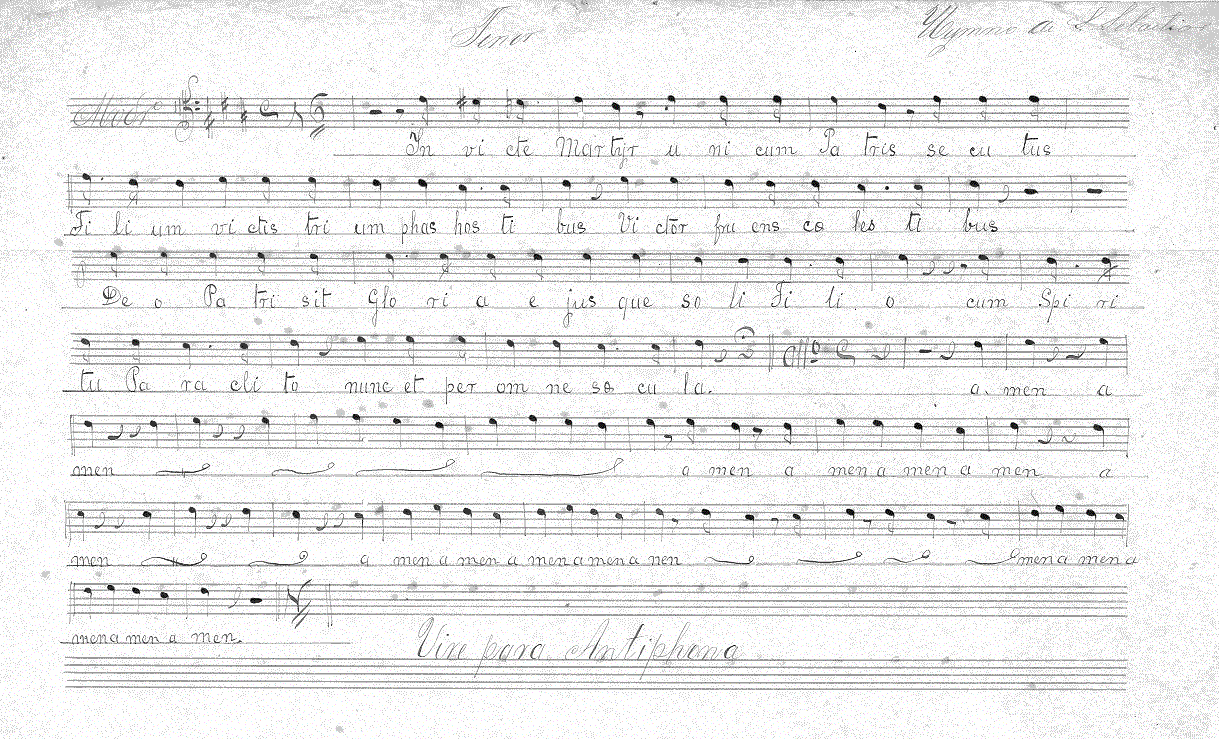 Tenor
Hymno de S. Sebastião
Modto
In vi cte Martyr u ni cum Pa tris se cu tus
Fi li um vi ctis tri um phas hos ti bus Vi ctor fru ens cœ les ti bus
De o Pa tri sit Glo ri a e jus que so li Fi li o cum Spi ri
tu Pa ra cli to nunc et per om ne sœ cu la. a. men a
men a men a men a men a men a
men a men a men a men a men a nen men a men a
men a men a men.
Vire para Antiphona